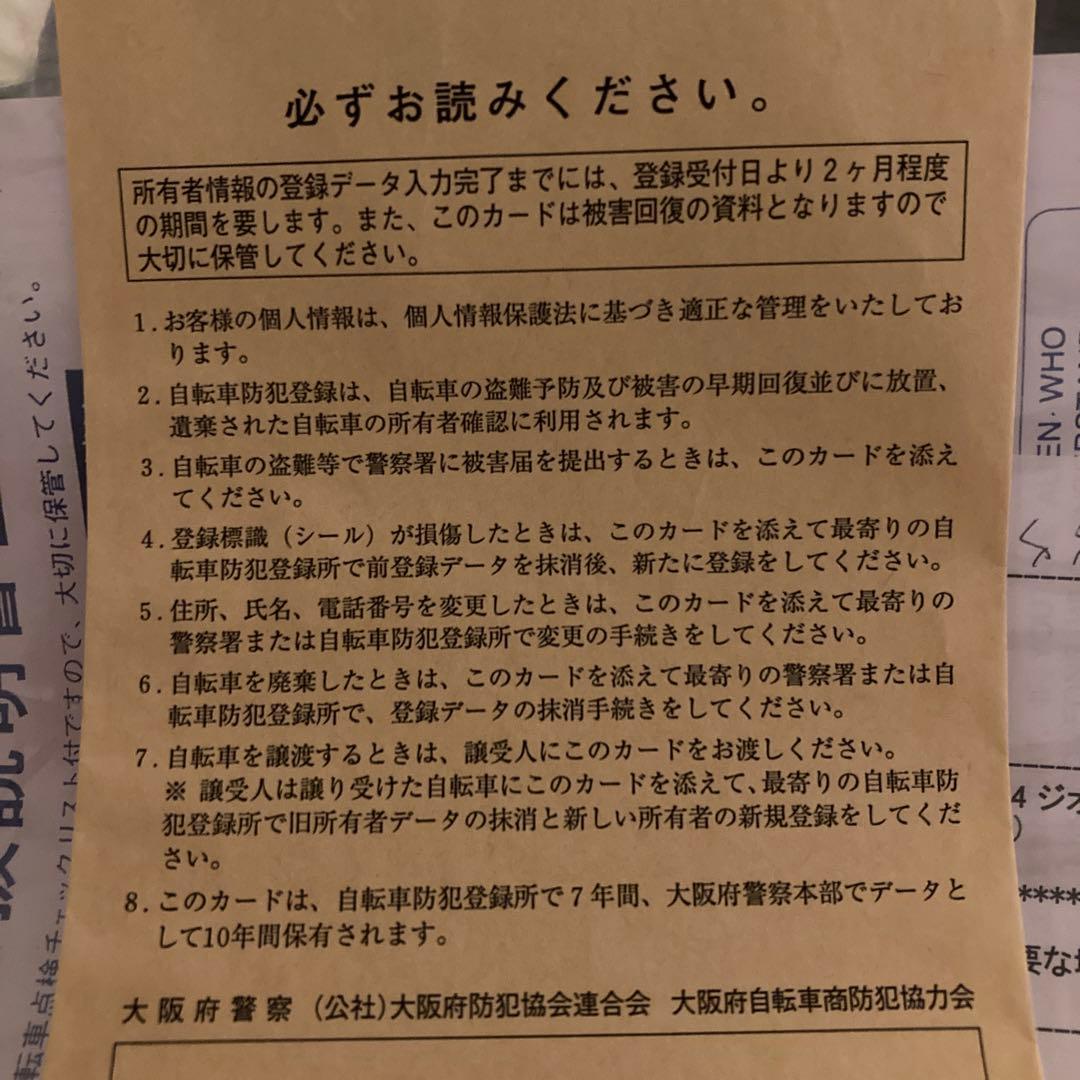 必ずお読みください。
所有者情報の登録データ入力完了までには、登録受付日より２ヶ月程度
の期間を要します。また、このカードは被害回復の資料となりますので
大切に保管してください。
1.お客様の個人情報は、個人情報保護法に基づき適正な管理をいたしてお
ります。
2.自転車防犯登録は、自転車の盗難予防及び被害の早期回復並びに放置、
遺棄された自転車の所有者確認に利用されます。
3.自転車の盗難等で警察署に被害届を提出するときは、このカードを添え
てください。
4.登録標識（シール）が損傷したときは、このカードを添えて最寄りの自
転車防犯登録所で前登録データを抹消後、新たに登録をしてください。
5.住所、氏名、電話番号を変更したときは、このカードを添えて最寄りの
警察署または自転車防犯登録所で変更の手続きをしてください。
6.自転車を廃棄したときは、このカードを添えて最寄りの警察署または自
転車防犯登録所で、登録データの抹消手続きをしてください。
7.自転車を譲渡するときは、譲受人にこのカードをお渡しください。
※ 譲受人は譲り受けた自転車にこのカードを添えて、最寄りの自転車防
犯登録所で旧所有者データの抹消と新しい所有者の新規登録をしてくだ
さい。
8.このカードは、自転車防犯登録所で７年間、大阪府警察本部でデータと
して10年間保有されます。
大阪府警察 （公社）大阪府防犯協会連合会 大阪府自転車商防犯協力会
転車点検チェックリスト付ですので、大切に保管してください。
扱説明書
EN・WHO
4 ジオ
****
要な場